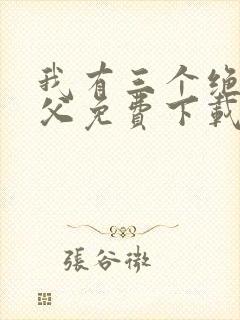 我有三个绝
父免费下载
張谷微